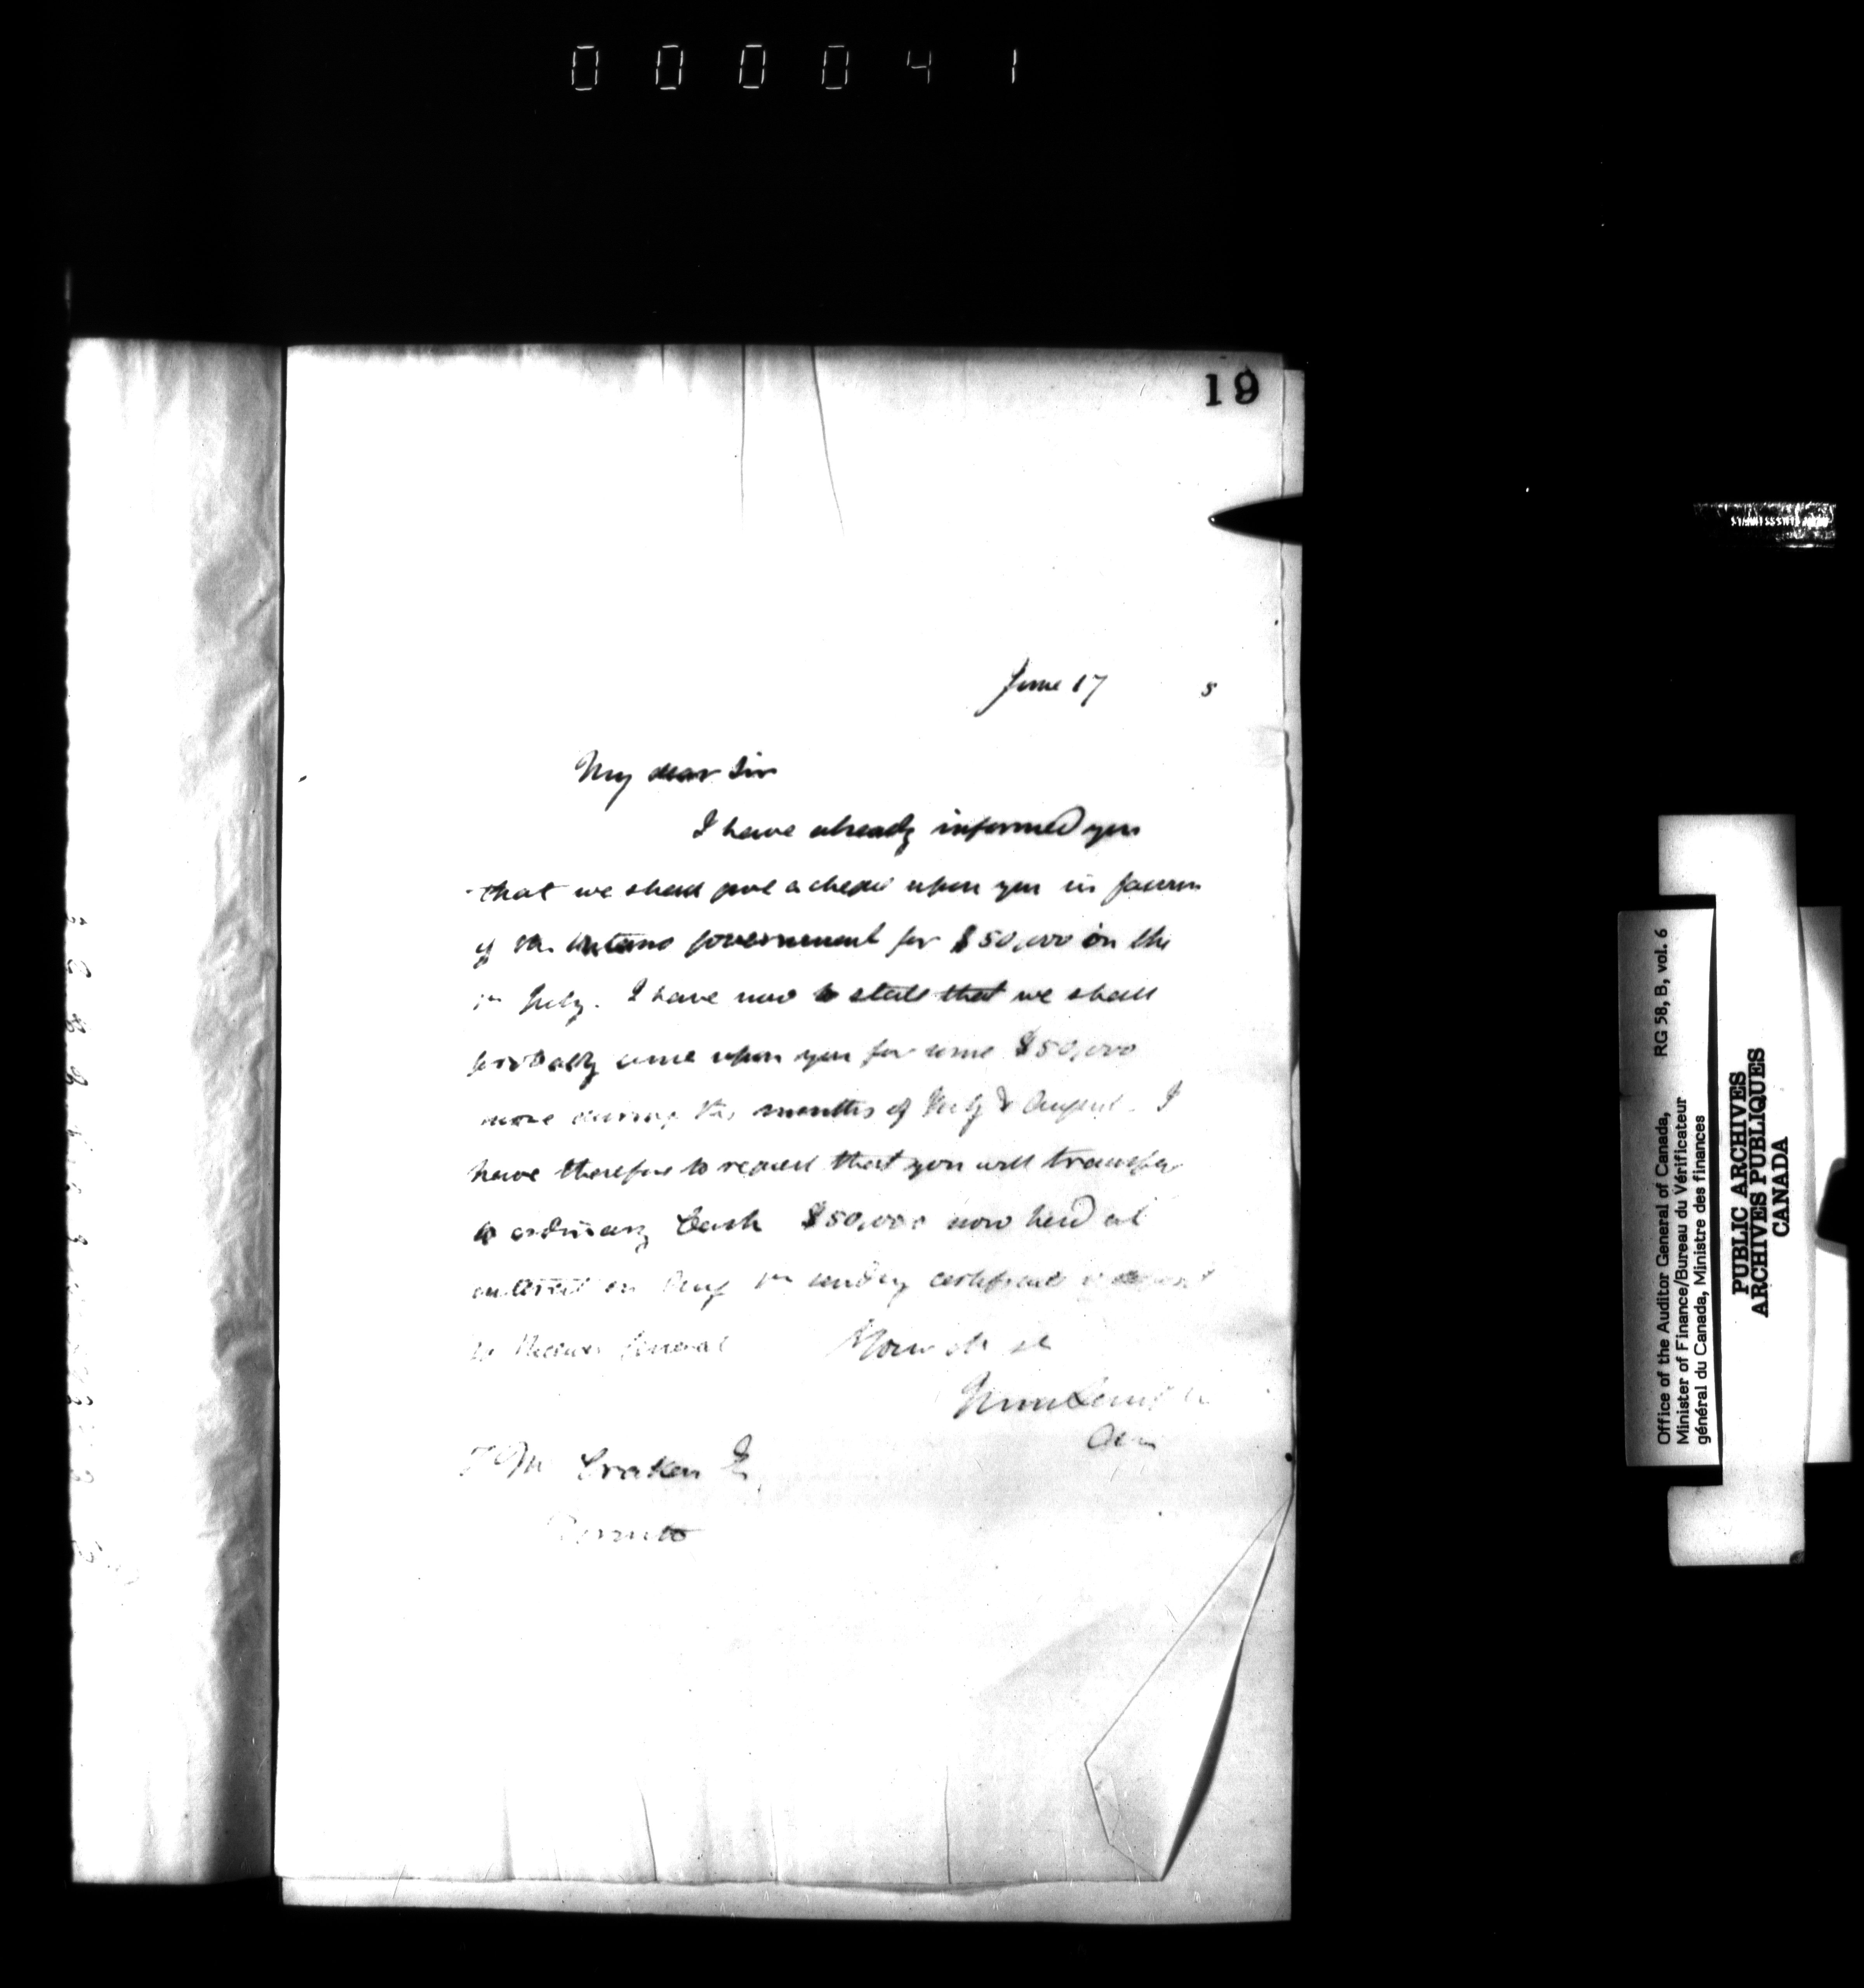 000041
19
June 17 5
My dear Sir
I have already informed you
that we shall give a cheque upon you in favour
of the Ontario Government for $50,000 on the
1st July. I have now to state that we shall
probably come upon you for some $50,000
more during the months of July & August. I
have therefore to request that you will transfer
to ordinary Cash $50,000 now held at
interest on Aug 1st sending certificate
to Receiver General
Yours
Craken
Toronto
Office of the Auditor General of Canada, RG 58, B, vol. 6
Minister of Finance/Bureau du Vérificateur
général du Canada, Ministre des finances
PUBLIC ARCHIVES
ARCHIVES PUBLIQUES
CANADA